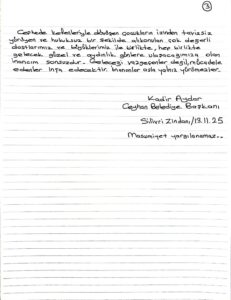 3
Cephede katilleriyle dövüşen çocukların izinden tavizsiz
yürüyen ve hukuksuz bir şekilde alıkonulan çok değerli
dostlarımız ve büyüklerimiz ile birlikte, hep birlikte
gelecek güzel ve aydınlık günlere ulaşacağımıza olan
inancım sonsuzdur. Geleceği vazgeçenler değil, mücadele
edenler inşa edecektir. İnananlar asla yalnız yürümezler.
Kadir Aydar
Ceyhan Belediye Başkanı
Silivri Zindanı/19.11.25
Masumiyet yargılanamaz..